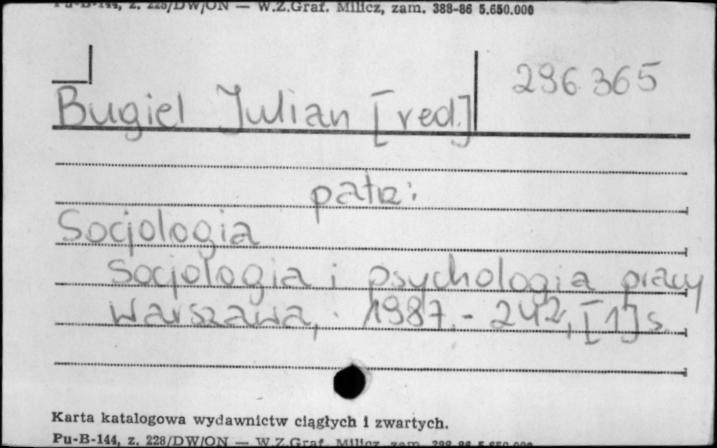 Pu-B-144, z. 228/DW/ON — W.Z.Graf. Milicz, zam. 388-86 5.650.000
296365
Bugiel Julian [red.]
patrz:
Socjologia
Socjologia i psychologia pracy
Warszawa, 1987.- 242, [1] s.
Karta katalogowa wydawnictw ciągłych i zwartych.
Pu-B-144, z. 228/DW/ON — W.Z.Graf. Milicz, zam. 388-86 5.650.000